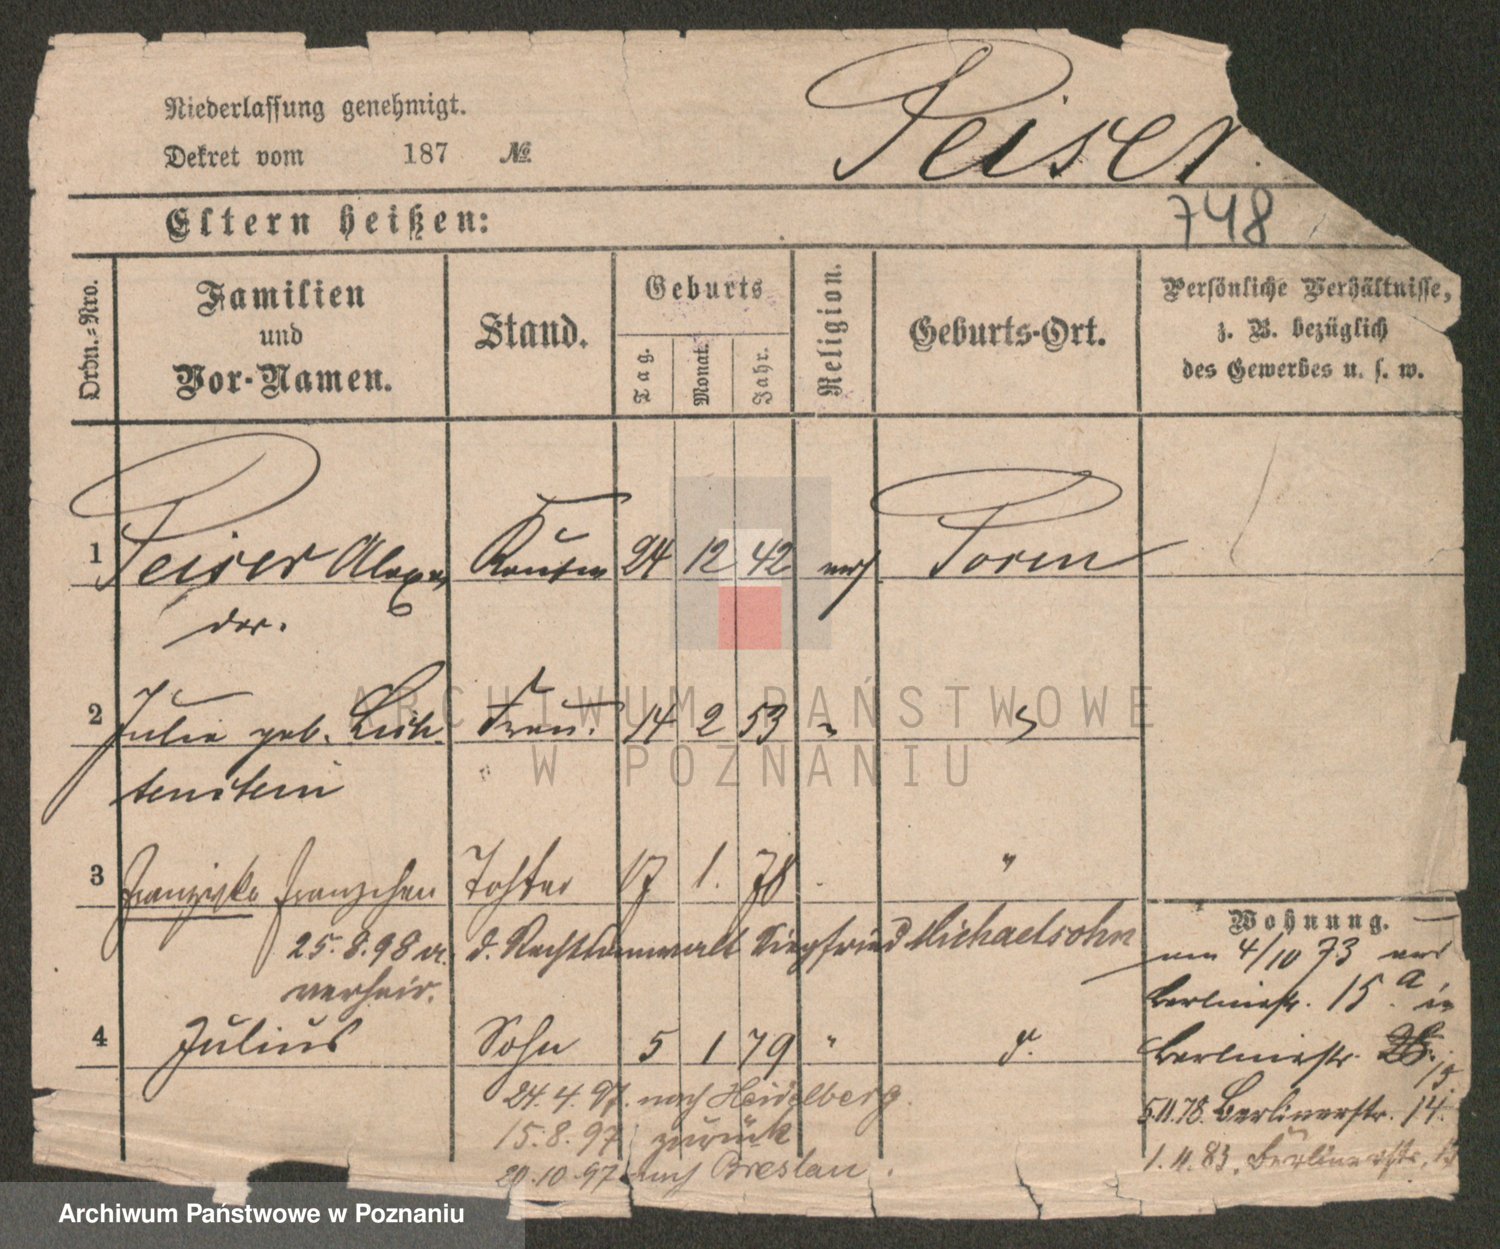 Niederlassung genehmigt.
Dekret vom 187 №
Peiser
748
Eltern heißen:
Ordn.-Nro.
Familien und Vor-Namen.
Stand.
Geburts
Tag.
Monat.
Jahr.
Religion.
Geburts-Ort.
Persönliche Verhältnisse,
z. B. bezüglich
des Gewerbes u. s. w.
1 Peiser Alexan Kaufm 24 12 42 mos Posen
der.
2 Julie geb. Lich Frau. 14 2 53 " "
tenstein
3 Franziska Fränzchen Tochter 17 1. 78 "
25.8.98 a. d. Rechtsanwalt Siegfried Michaelsohn
verheir.
4 Julius Sohn 5 1 79 " d.
24.4.97. nach Heidelberg.
15.8.97 zurück
20.10.97 nach Breslau.
Wohnung.
4/10 73
Berlinerstr. 15.a in
Berlinerstr. 15.
5.11.78. Berlinerstr. 14.
1.4.83. Berlinerstr.
ARCHIWUM PAŃSTWOWE
W POZNANIU
Archiwum Państwowe w Poznaniu